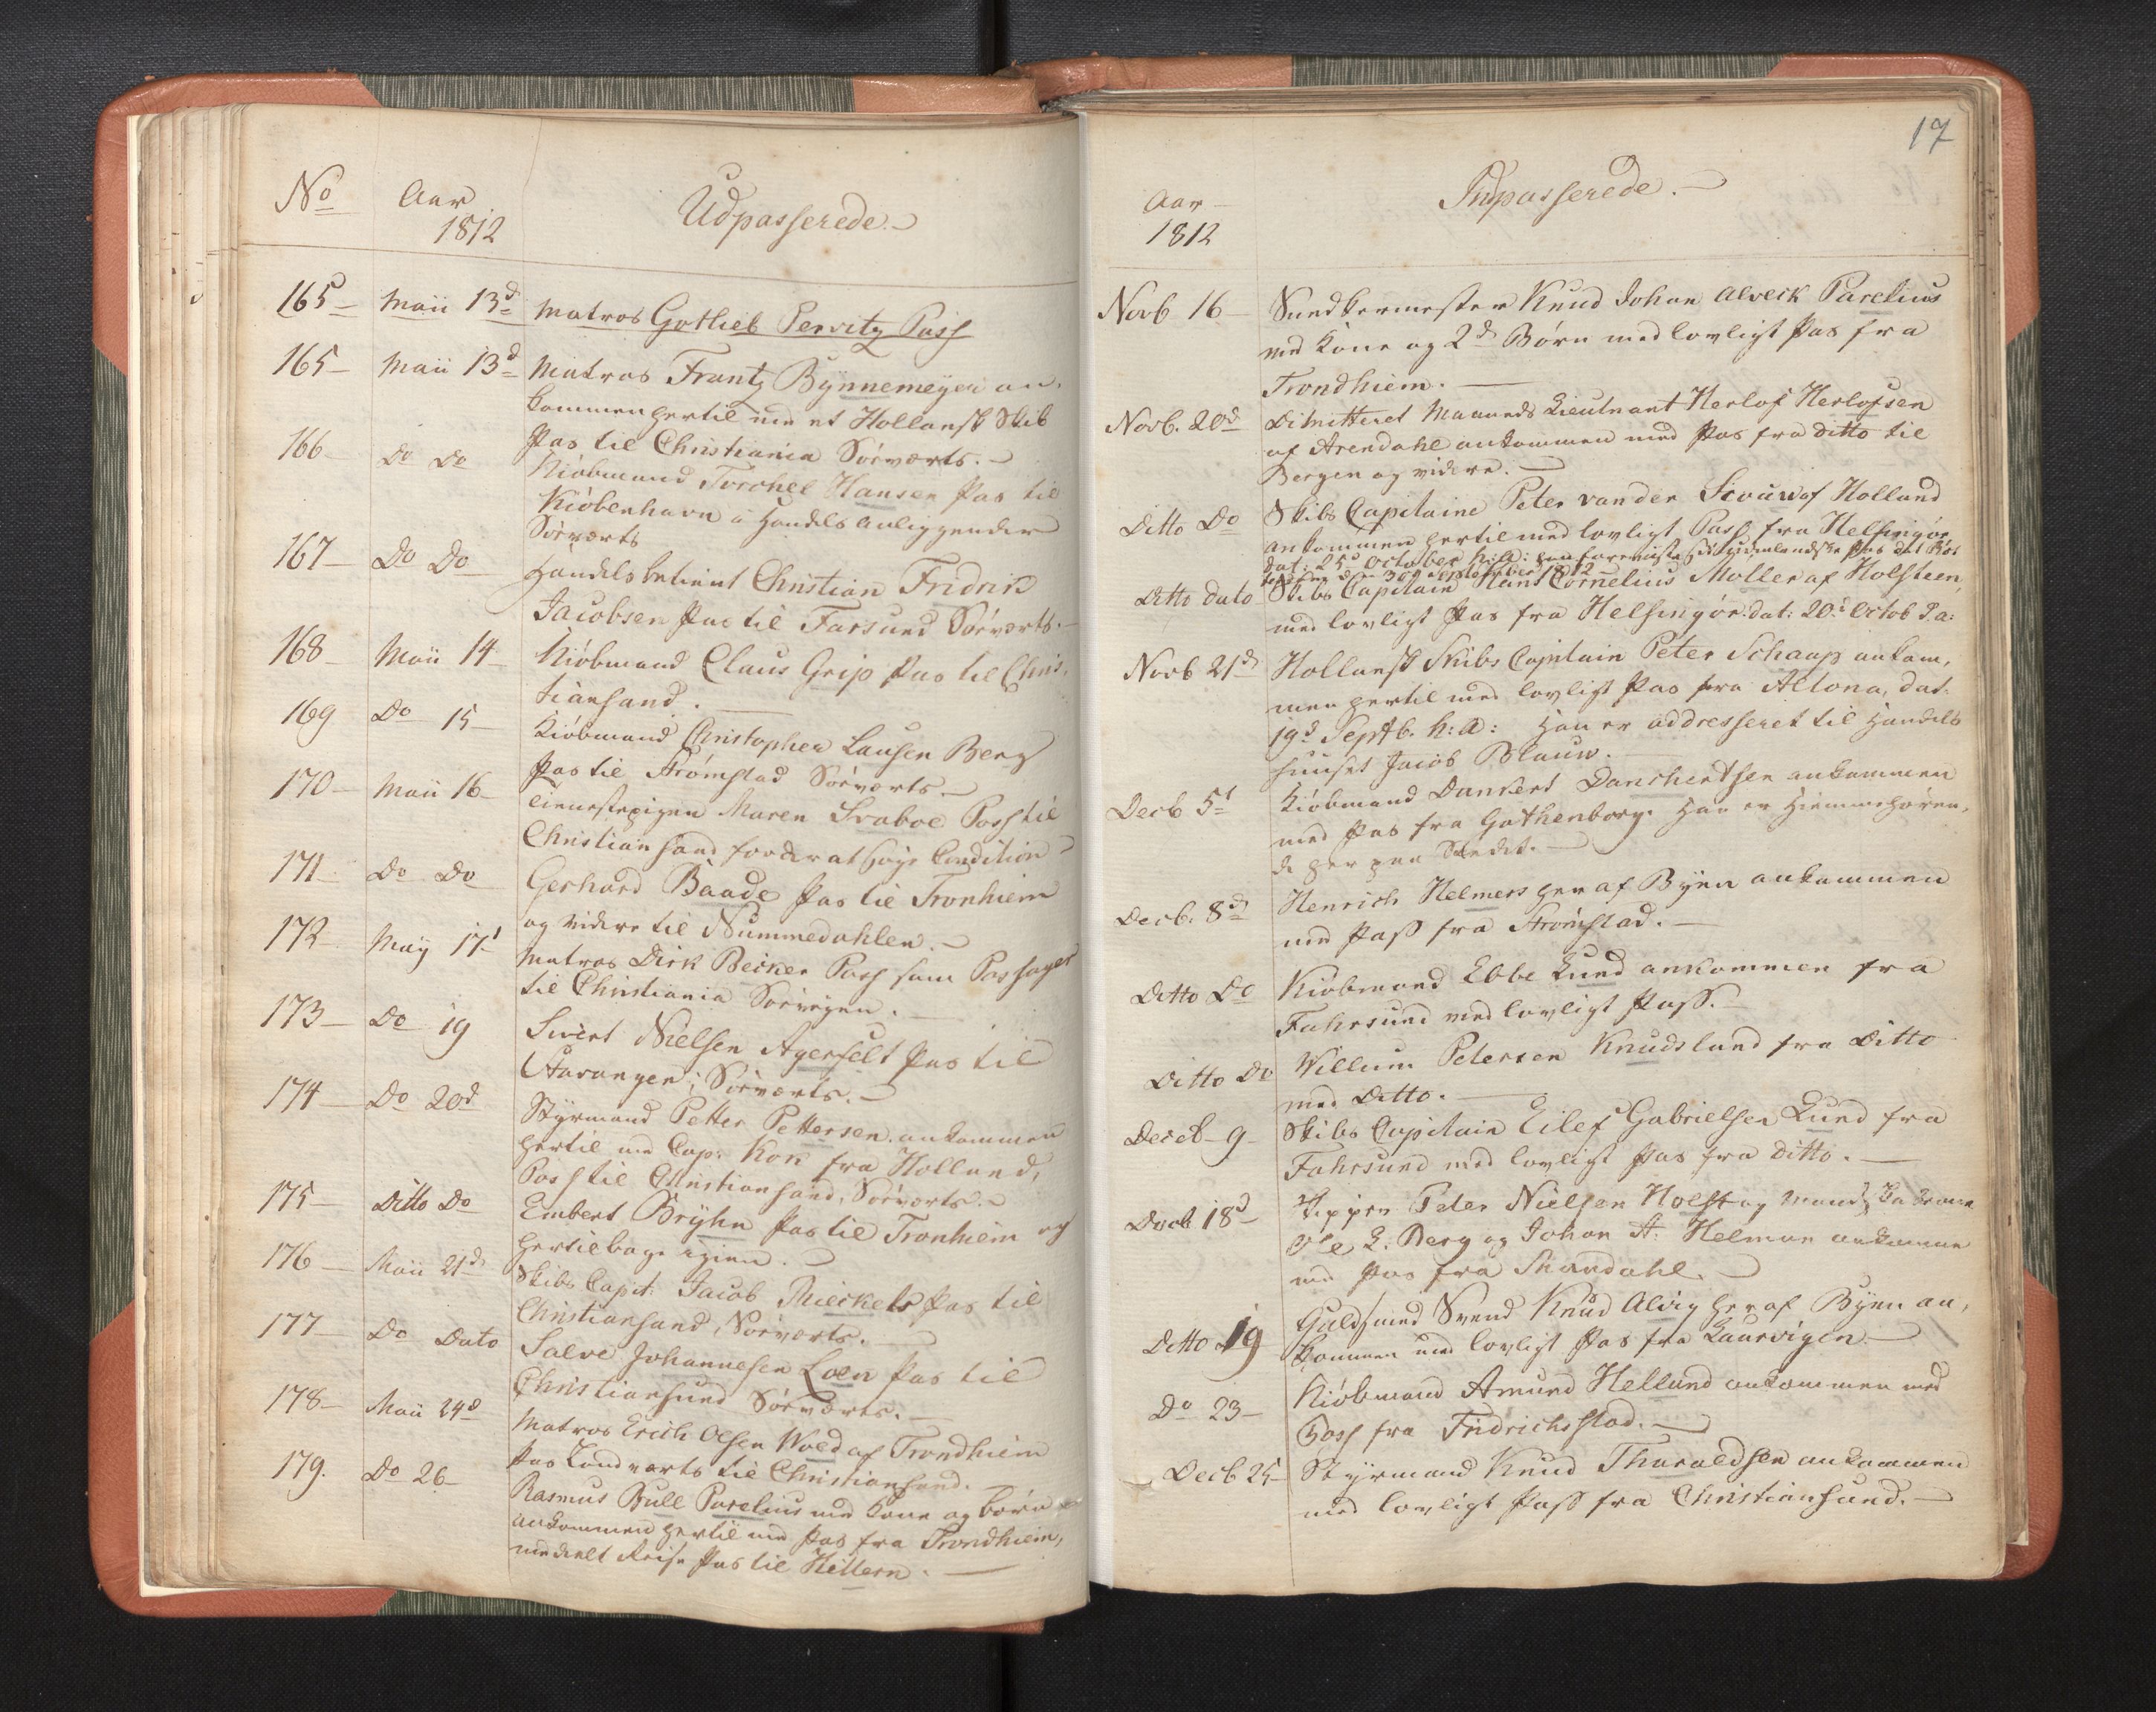 No Aar Udpasserede.
1812
165 Maii 13d Matros Gottlieb Pervitz Pass
165 Maii 13d Matros Frantz Bÿnnemeyer an-
kommen hertil med et Hollansk Skib
Pas til Christiania Sörværts.
166 Do Do Kiöbmand Torchel Hansen Pas til
Kiöbenhavn i Handels Anliggender
Sörværts
167 Do Do Handelsbetient Christian Fridrik
Jacobsen Pas til Farsund Sörværts.
168 Maii 14 Kiöbmand Claus Grip Pas til Chris-
tiansand.
169 Do 15 Kiöbmand Christopher Lausen Berg
Pas til Strömstad Sörværts.
170 Maii 16 Tienestepigen Maren Svaboe Pass til
Christiansand for der at søge Condition
171 Do Do Gerhard Baade Pas til Tronhiem
og videre til Nummedahlen.
172 Maÿ 17 Matros Dirk Becker Pass som Passager
til Christiania Sörvejen.
173 Do 19 Sivert Nielsen Agerfelt Pas til
Stavanger, Sörværts.
174 Do 20d Styrmand Petter Pettersen ankommen
hertil med Cap: Kok fra Holland,
Pass til Christiansand, Sörværts.
175 Ditto Do Embert Brÿhn Pas til Tronhiem og
hertilbage igien.
176 Maii 21d Skibs Capit: Jacob Mieckels Pas til
Christiansand, Sörværts.
177 Do Dato Salve Johannesen Loen Pas til
Christiansund Sörværts.
178 Maii 24d Matros Erich Olsen Wold af Trondhiem
Pas Landværts til Christiansand.
179. Do 26 Rasmus Bull Parelius med Kone og børn
ankommen hertil med Pas fra Trondhiem,
meddelt Reise Pas til Hitteren.
17
Aar Indpasserede.
1812
Novb 16 Sundkermester Knud Johan Alveck Parelius
med Kone og 2d Börn med lovligt Pas fra
Trondhiem.
Novb. 20d Dimitteret Maaneds Lieutnant Herlof Herlofsen
af Arendahl ankommen med Pas fra ditto til
Bergen og videre.
Ditto Do Skibs Capitaine Peter van der Scouw af Holland
ankommen hertil med lovligt Pass fra Helsingör
dat: 25 October h: a: han foreviiste sit udenlandske Pas dat
30d September 1812
Ditto dato Skibs Capitain Hans Cornelius Moller af Holsteen,
med lovligt Pas fra Helsingör. dat: 20d Octob d.a:
Novb 21d Hollansk Skibs Capitain Peter Schaap ankom-
men hertil med lovligt Pas fra Altona, dat.
19d Septb. h: a: Han er addresseret til Handels
huuset Jacob Blauw.
Decb 5t Kiöbmand Dankert Danckertsen ankommen
med Pas fra Gothenborg. Han er Hiemmehören-
de her paa Stedet.
Decb. 8d Henrich Helmers her af Byen ankommen
med Pass fra Strömstad.
Ditto Do Kiöbmand Ebbe Lund ankommen fra
Fahrsund med lovligt Pass.
Ditto Do Willum Petersen Knudslund fra Ditto
med Ditto.
Decb 9 Skibs Capitain Eilef Gabrielsen Lund fra
Fahrsund med lovligt Pas fra ditto.
Decb 18d Skipper Peter Nielsen Holst og Mandskaberne
Ole L. Berg og Johan A. Helman ankomne
med Pas fra Mandahl.
Ditto 19 Guldsmed Svend Knud Alvig her af Byen an-
kommen med lovligt Pas fra Laurvigen.
Do 23 Kiöbmand Amund Helland ankommen med
Pass fra Fridrichsstad.
Decb 25 Styrmand Knud Tharaldsen ankommen
med lovligt Pass fra Christiansund.